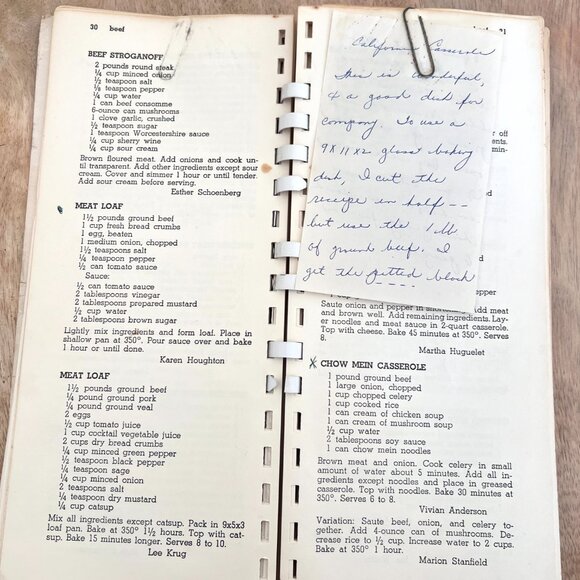 30 beef
BEEF STROGANOFF
2 pounds round steak
¼ cup minced onion
½ teaspoon salt
⅛ teaspoon pepper
¼ cup water
1 can beef consomme
6-ounce can mushrooms
1 clove garlic, crushed
½ teaspoon sugar
1 teaspoon Worcestershire sauce
¼ cup sherry wine
¾ cup sour cream
Brown floured meat. Add onions and cook un-
til transparent. Add other ingredients except sour
cream. Cover and simmer 1 hour or until tender.
Add sour cream before serving.
Esther Schoenberg
MEAT LOAF
1½ pounds ground beef
1 cup fresh bread crumbs
1 egg, beaten
1 medium onion, chopped
1½ teaspoons salt
¼ teaspoon pepper
½ can tomato sauce
Sauce:
½ can tomato sauce
2 tablespoons vinegar
2 tablespoons prepared mustard
½ cup water
2 tablespoons brown sugar
Lightly mix ingredients and form loaf. Place in
shallow pan at 350°. Pour sauce over and bake
1 hour or until done.
Karen Houghton
MEAT LOAF
1½ pounds ground beef
¼ pound ground pork
¼ pound ground veal
2 eggs
½ cup tomato juice
1 cup cocktail vegetable juice
2 cups dry bread crumbs
¼ cup minced green pepper
½ teaspoon black pepper
¼ teaspoon sage
¼ cup minced onion
2 teaspoons salt
¼ teaspoon dry mustard
¼ cup catsup
Mix all ingredients except catsup. Pack in 9x5x3
loaf pan. Bake at 350° 1½ hours. Top with cat-
sup. Bake 15 minutes longer. Serves 8 to 10.
Lee Krug
31
California Casserole
this is wonderful,
& a good dish for
company. To use a
9X11X2 glass baking
dish, I cut the
recipe in half --
but use the 1 lb
of ground beef. I
get the jetted block
off
min-
pepper
Saute onion and pepper in shortening. Add meat
and brown well. Add remaining ingredients. Lay-
er noodles and meat sauce in 2-quart casserole.
Top with cheese. Bake 45 minutes at 350°. Serves
8.
Martha Huguelet
X CHOW MEIN CASSEROLE
1 pound ground beef
1 large onion, chopped
1 cup chopped celery
1 cup cooked rice
1 can cream of chicken soup
1 can cream of mushroom soup
½ cup water
2 tablespoons soy sauce
1 can chow mein noodles
Brown meat and onion. Cook celery in small
amount of water about 5 minutes. Add all in-
gredients except noodles and place in greased
casserole. Top with noodles. Bake 30 minutes at
350°. Serves 6 to 8.
Vivian Anderson
Variation: Saute beef, onion, and celery to-
gether. Add 4-ounce can of mushrooms. De-
crease rice to ½ cup. Increase water to 2 cups.
Bake at 350° 1 hour.
Marion Stanfield